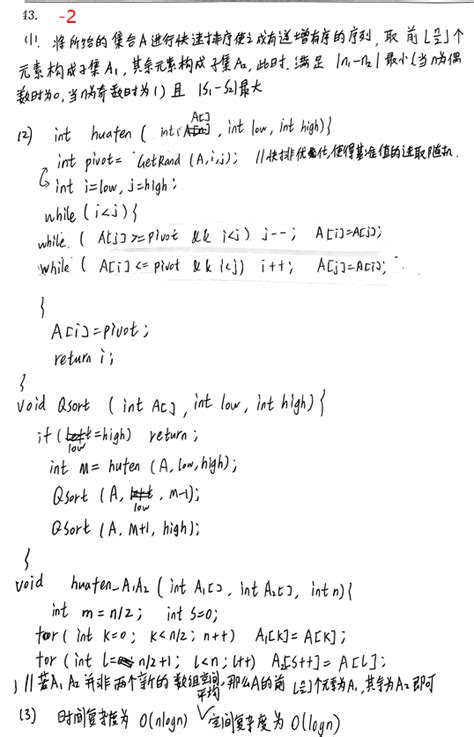 43. -2
(1). 将所给的集合A进行快速排序使之成有递增有序的序列, 取前⌊n/2⌋个
元素构成子集A₁, 其余元素构成子集A₂, 此时, 满足 |n₁-n₂| 最小(当n为偶
数时为0, 当n为奇数时为1) 且 |S₁-S₂|最大
(2) int huafen ( int A[] , int low, int high){
int pivot= GetRand (A,i,j); //快排优化, 使得基准值的选取随机.
int i=low, j=high;
while (i<j){
while. ( A[j]>=pivot && i<j) j--; A[i]=A[j];
while ( A[i]<=pivot && i<j) i++; A[j]=A[i];
}
A[i]=pivot;
return i;
}
void Qsort ( int A[], int low, int high){
if (low=high) return;
int m= hufen (A, low, high);
Qsort (A, low, m-1);
Qsort (A, m+1, high);
}
void huafen_A₁A₂ ( int A₁[], int A₂[], int n){
int m=n/2; int s=0;
for ( int k=0; k<n/2; n++) A₁[k]=A[k];
for ( int l= n/2+1; l<n; l++) A₂[s++]=A[l];
} //若A₁A₂并非两个新的数组空间, 那么A的前⌊n/2⌋个元素为A₁, 其余为A₂即可
(3) 时间复杂度为 O(nlogn) 平均空间复杂度为 O(logn)